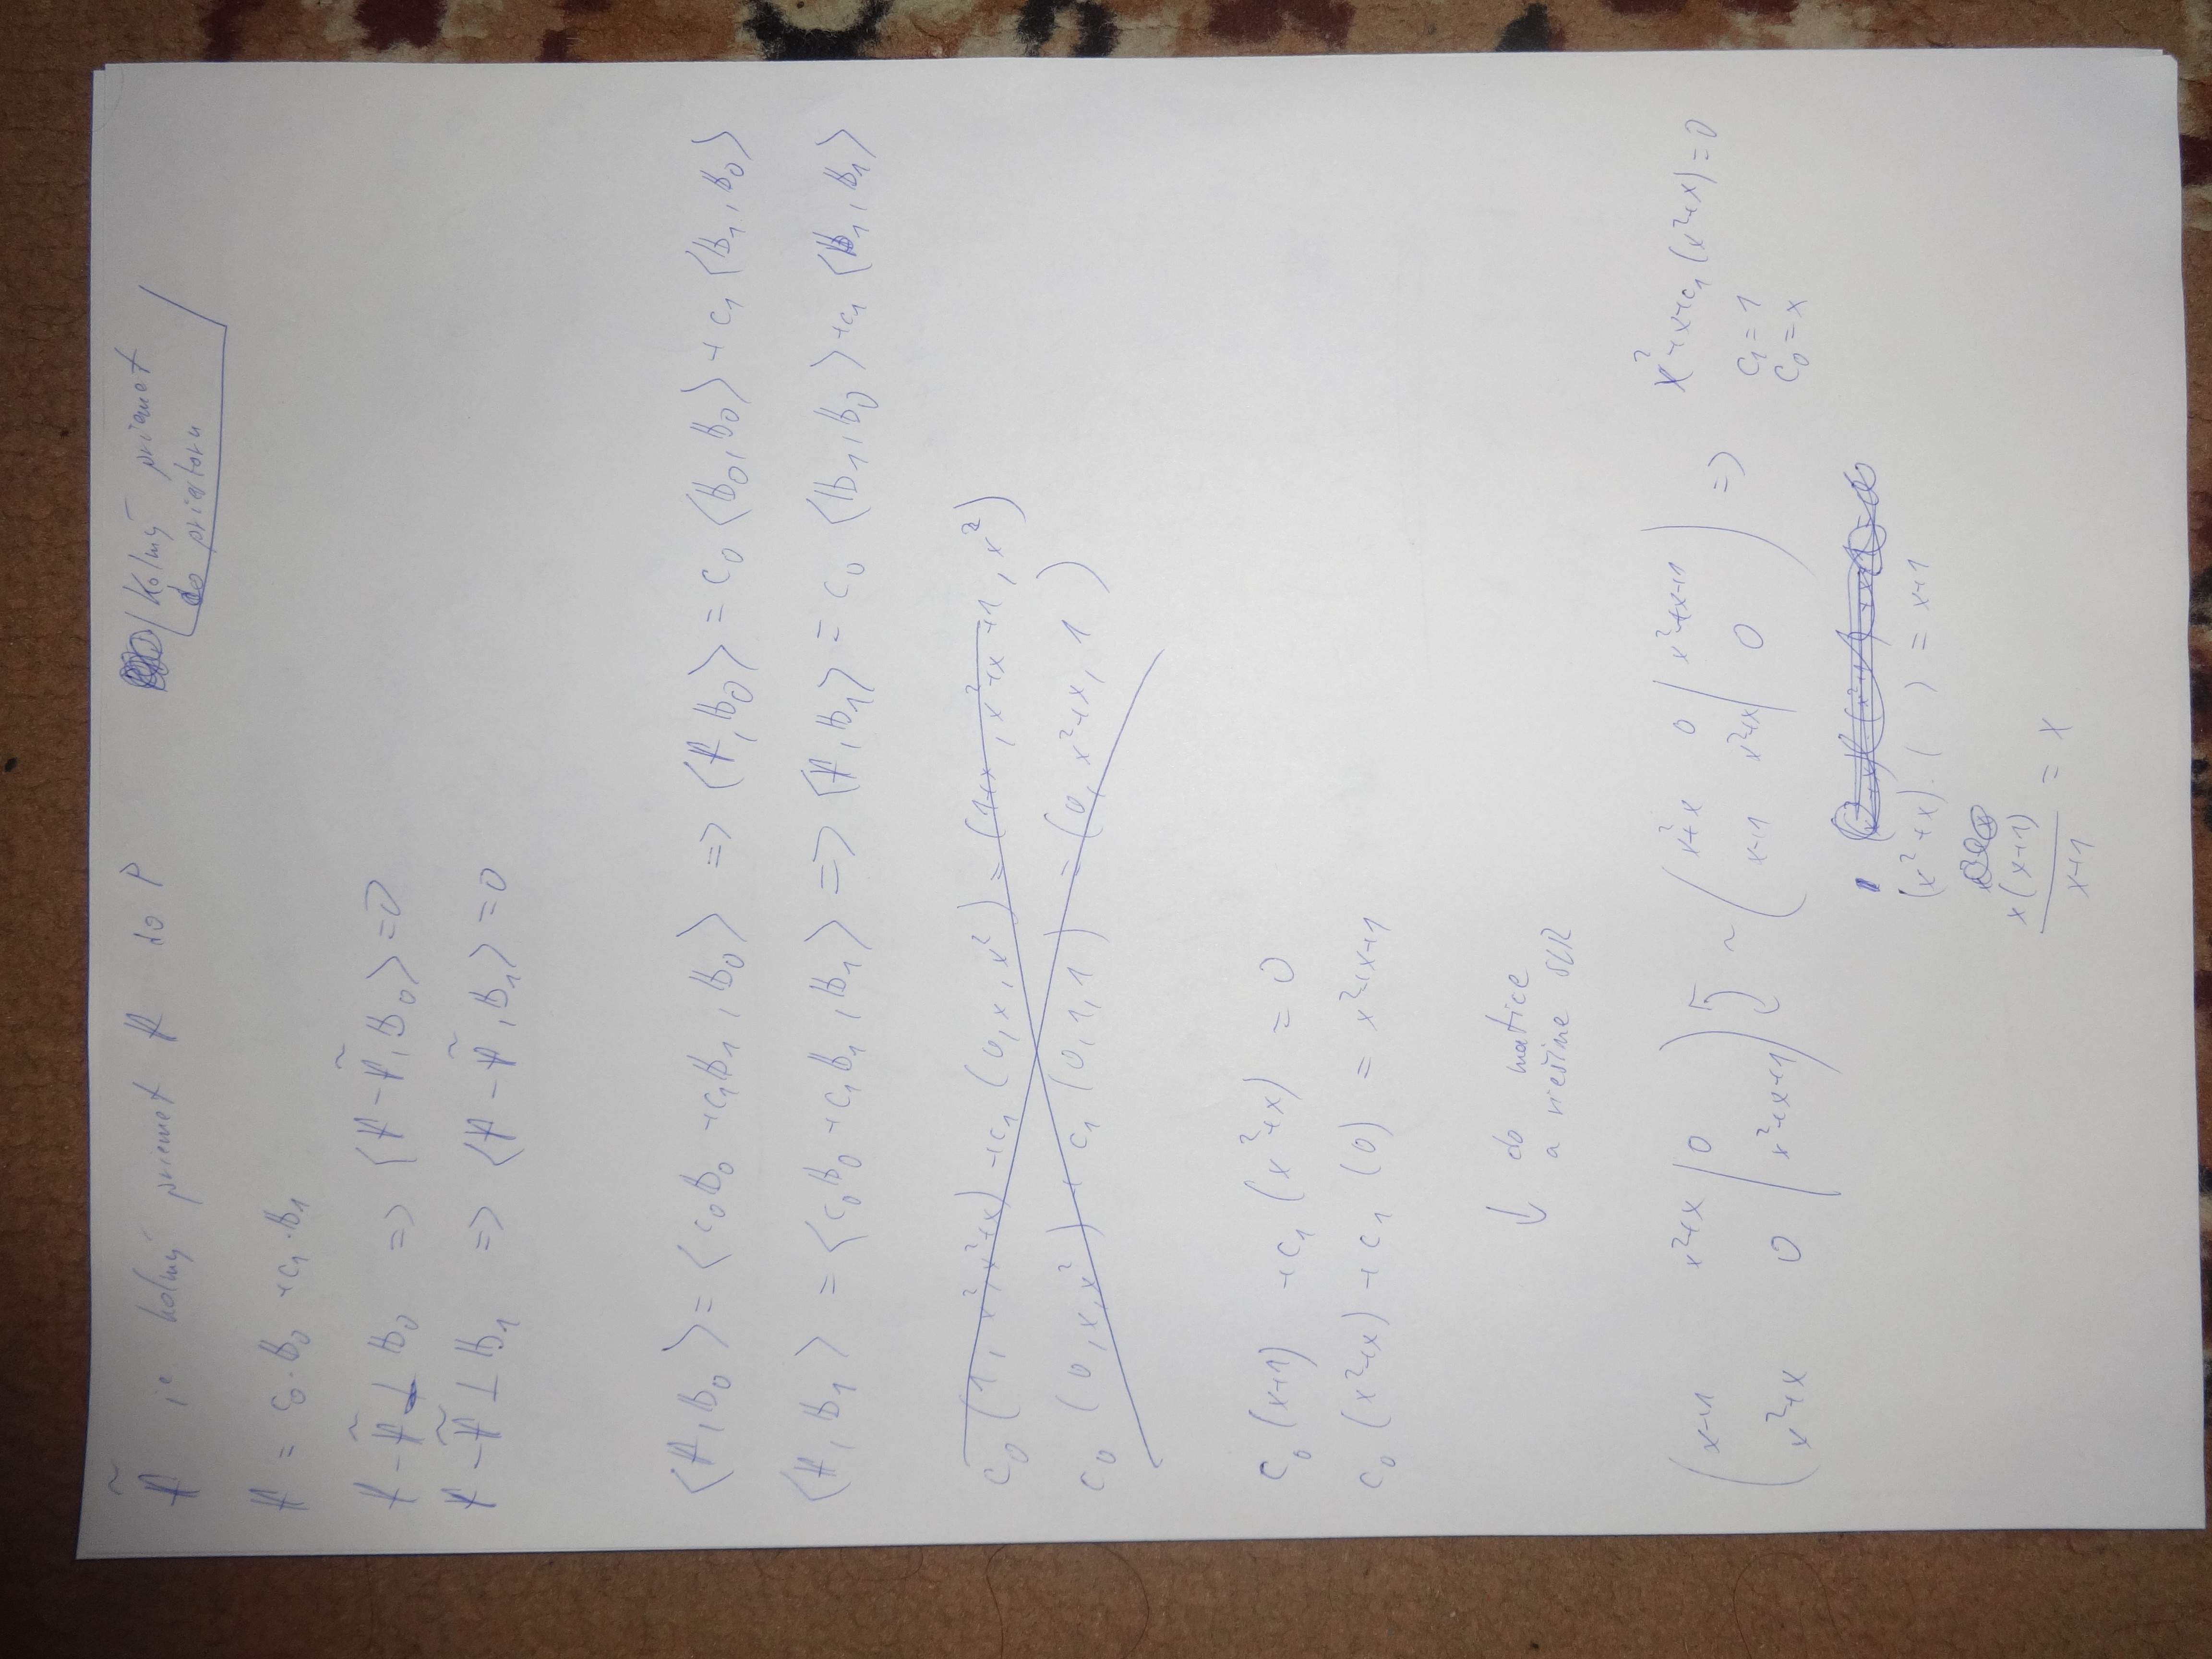 Ã je kolmý priemet A do P
Kolmý priemet
do priestoru
A = c₀·b₀ + c₁·b₁
A - Ã ⊥ b₀ => ⟨A - Ã, b₀⟩ = 0
A - Ã ⊥ b₁ => ⟨A - Ã, b₁⟩ = 0
⟨A, b₀⟩ = ⟨c₀b₀ + c₁b₁, b₀⟩ => ⟨A, b₀⟩ = c₀ ⟨b₀, b₀⟩ + c₁ ⟨b₁, b₀⟩
⟨A, b₁⟩ = ⟨c₀b₀ + c₁b₁, b₁⟩ => ⟨A, b₁⟩ = c₀ ⟨b₁, b₀⟩ + c₁ ⟨b₁, b₁⟩
c₀ (1, x², x²+x) + c₁ (0, x, x²) = (1+x, x²+x+1, x²)
c₀ (0, x, x²) + c₁ (0, 1, 1) = (0, x²+x, 1)
c₀ (x+1) + c₁ (x²+x) = 0
c₀ (x²+x) + c₁ (0) = x²+x+1
↓ do matice
a riešime SLR
( x+1 x²+x | 0 ) ~ ( x²+x 0 | x²+x+1 ) => x²+x+c₁(x²+x) = 0
( x²+x 0 | x²+x+1 ) ( x+1 x²+x | 0 ) c₁ = 1
c₀ = x
(x²+x).( ) = x+1
x(x+1)
/ x+1 = x